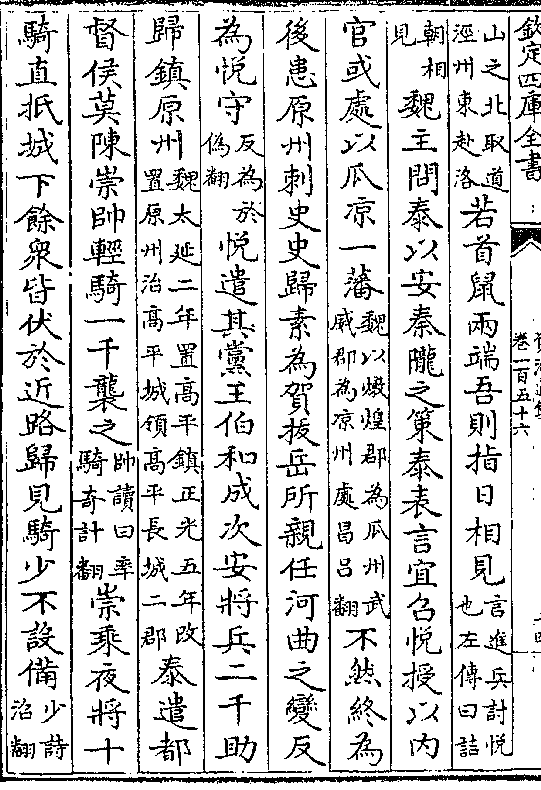 欽定四庫全書
卷一百五十六
山之北取道涇州東赴洛若首鼠兩端吾則指日相見言進兵討悅也左傳曰詰
朝相見魏主問泰以安秦隴之策泰表言宜召悅授以内
官或處以瓜凉一藩魏以燉煌郡為瓜州武威郡為凉州處昌吕翻不然終為
後患原州刺史史歸素為賀拔岳所親任河曲之變反
為悅守反為於偽翻悅遣其黨王伯和成次安將兵二千助
歸鎮原州魏太延二年置高平鎮正光五年改置原州治高平城領高平長城二郡泰遣都
督侯莫陳崇帥輕騎一千襲之帥讀曰率騎奇計翻崇乘夜將十
騎直抵城下餘衆皆伏於近路歸見騎少不設備少詩沼翻